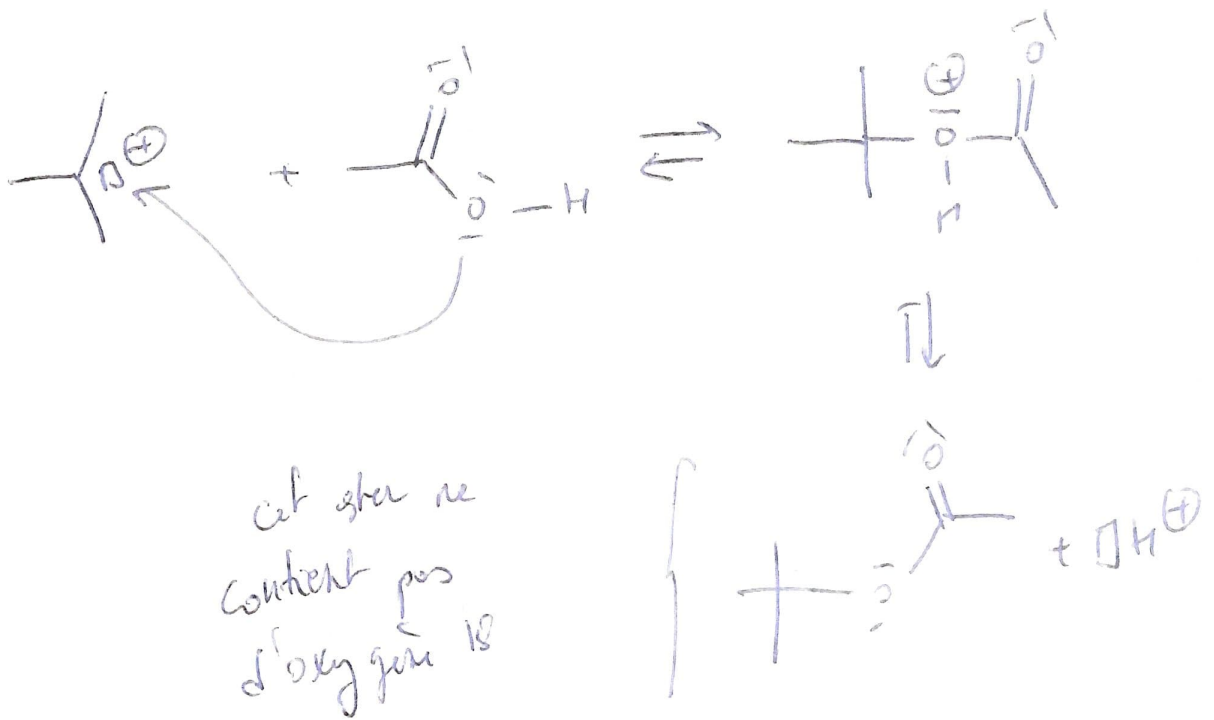 ⊕
+
O
O – H
⇌
⊕
O
O
H
⇌
cet ester ne
contient pas
d'oxygène 18
O
O
+ H⊕